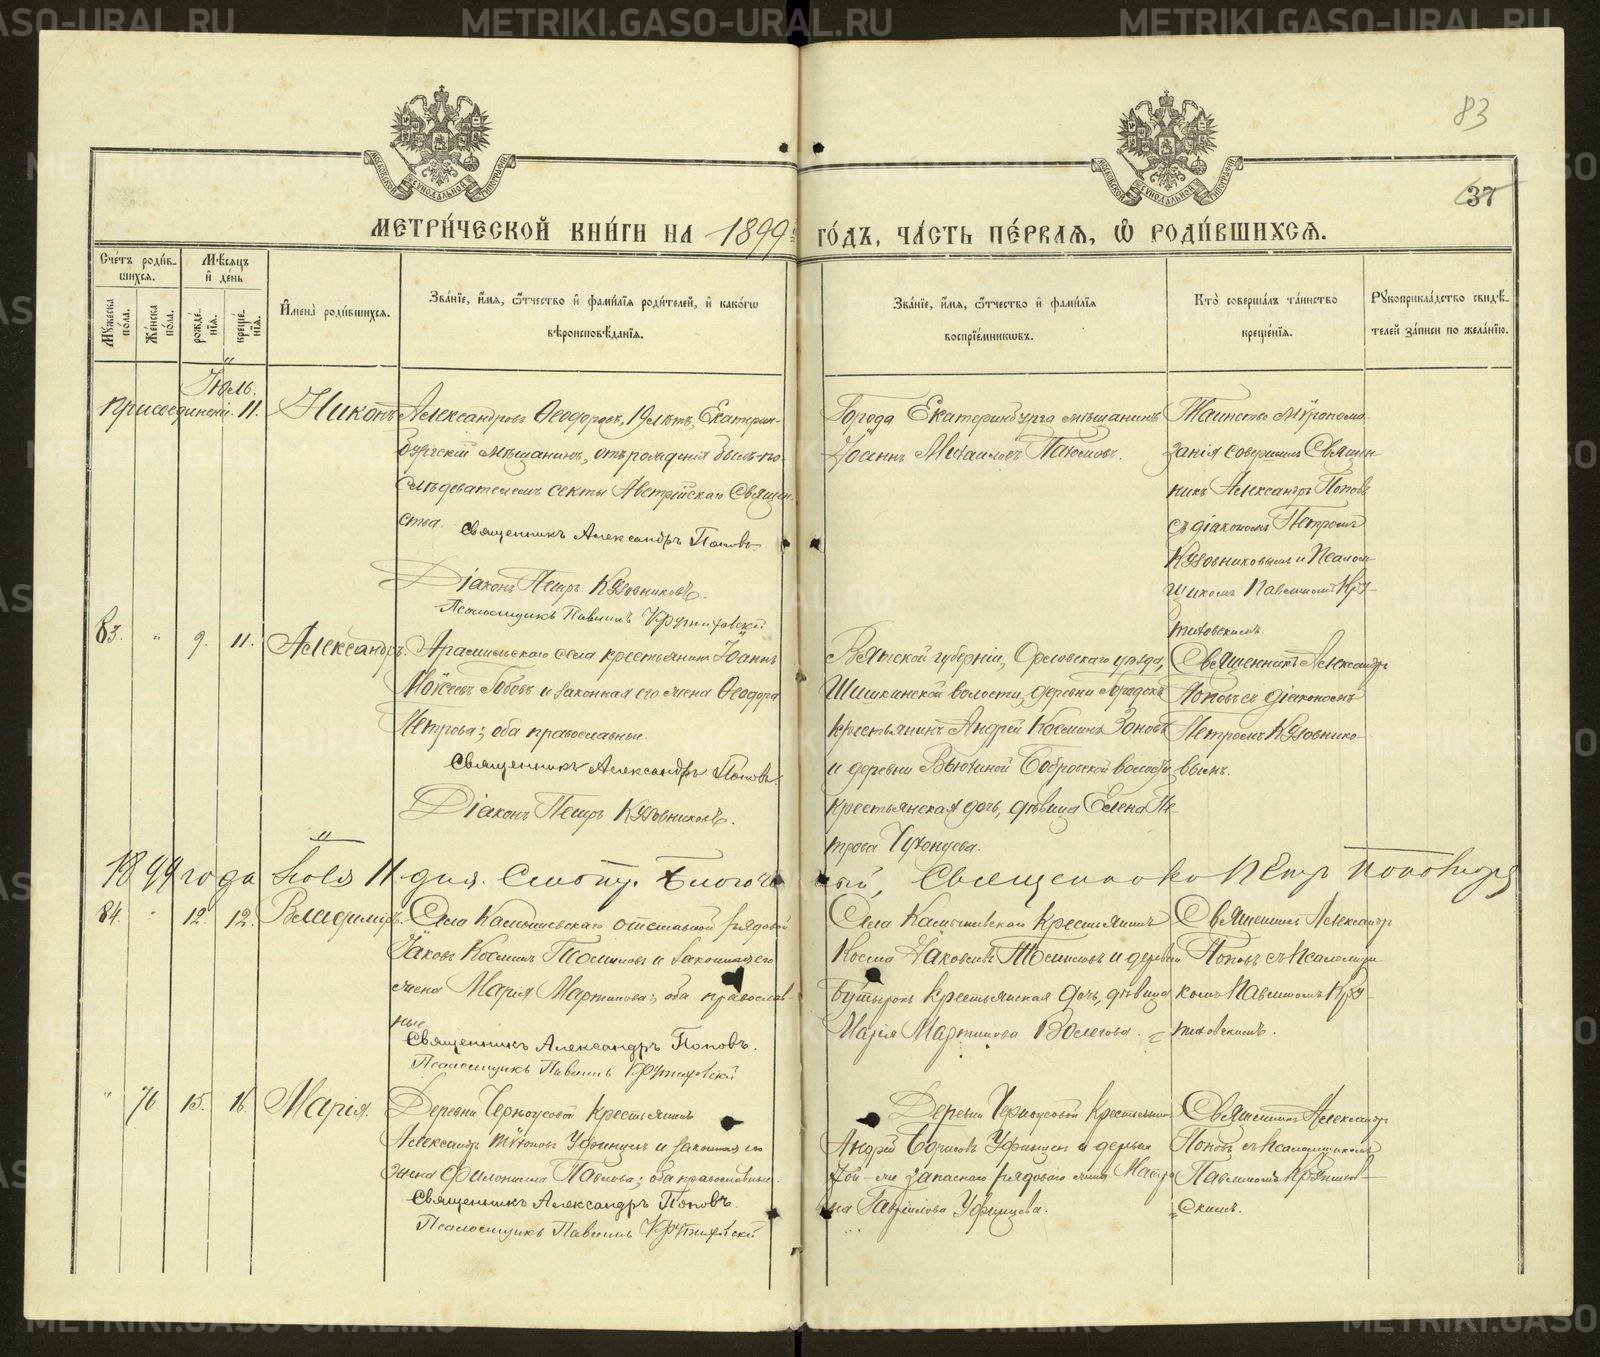 METRIKI.GASO-URAL.RU
83
37
МОСКОВСКОЙ СѴНОДАЛЬНОЙ ТИПОГРАФІИ
МОСКОВСКОЙ СѴНОДАЛЬНОЙ ТИПОГРАФІИ
МЕТРИ́ЧЕСКОЙ КНИ́ГИ НА 1899 ГО́ДЪ, ЧА́СТЬ ПЕ́РВАЯ, Ѡ҆ РОДИ́ВШИХСЯ.
Сче́тъ роди́в-
шихся.
Мꙋжеска по́ла.
Же́нска по́ла.
Мѣ́сяцъ и҆ де́нь
рожде́-
нїя.
креще́-
нїя.
И҆мена̀ роди́вшихся.
Зва́нїе, и҆́мя, ѻ҆́тчество и҆ фами́лїя роди́телей, и҆ како́гѡ
вѣроисповѣ́данїя.
Зва́нїе, и҆́мя, ѻ҆́тчество и҆ фами́лїя
воспрїе́мникѡвъ.
Кто̀ соверша́лъ та́инство
креще́нїя.
Рꙋкоприкла́дство свидѣ́-
телей за́писи по жела́нїю.
Іюль.
присоединеніе. 11. Никонъ
Александровъ Ѳеодоровъ, 19 лѣтъ, Екатерин-
бургскій мѣщанинъ, отъ рожденія былъ по-
слѣдователемъ секты Австрійскаго Священ-
ства. Священникъ Александръ Поповъ
Діаконъ Петръ Кузовниковъ.
Псаломщикъ Павлинъ Крутиховскій
Города Екатеринбурга мѣщанинъ
Іоаннъ Михаиловъ
Таинство мѵропома-
занія совершилъ Священ-
никъ Александръ Поповъ
съ діакономъ Петромъ
Кузовниковымъ и Псалом-
щикомъ Павлиномъ Кру-
тиховскимъ.
83. " 9. 11. Александръ.
Арамильскаго села крестьянинъ Іоаннъ
Моѵсеевъ и законная его жена Ѳеодора
Петрова; оба православные.
Священникъ Александръ Поповъ
Діаконъ Петръ Кузовниковъ.
Вятской губерніи, Орловскаго уѣзда,
Шишкинской волости, деревни
крестьянинъ Андрей Косминъ Зоновъ
и деревни Вьюхиной Бобровской волости
крестьянская дочь, дѣвица Елена Пе-
трова
Священникъ Александръ
Поповъ съ діакономъ
Петромъ Кузовнико-
вымъ.
1899 года Іюля 11 дня. Священникъ Петръ
84. " 12. 12. Владимиръ.
Села Камышевскаго отставной рядовой
Іаковъ Косминъ и законная его
жена Марія Мартинова; оба православ-
ные
Священникъ Александръ Поповъ.
Псаломщикъ Павлинъ Крутиховскій
Села Камышевскаго крестьянинъ
Косма Іаковлевъ и деревни
Бутырокъ крестьянская дочь, дѣвица
Марія Мартинова Волегова.
Священникъ Александръ
Поповъ съ Псаломщи-
комъ Павлиномъ Кру-
тиховскимъ.
" 76 15. 16. Марія.
Деревни Черноусовой крестьянинъ
Александръ Уфинцевъ и законная его
жена Филонилла Павлова; оба православные.
Священникъ Александръ Поповъ.
Псаломщикъ Павлинъ Крутиховскій
Деревни Черноусовой крестьянинъ
Андрей Борисовъ Уфинцевъ и деревни
той-же запаснаго рядоваго жена Матро-
на Гавріилова Уфинцева.
Священникъ Александръ
Поповъ съ Псаломщикомъ
Павлиномъ Крутихов-
скимъ.